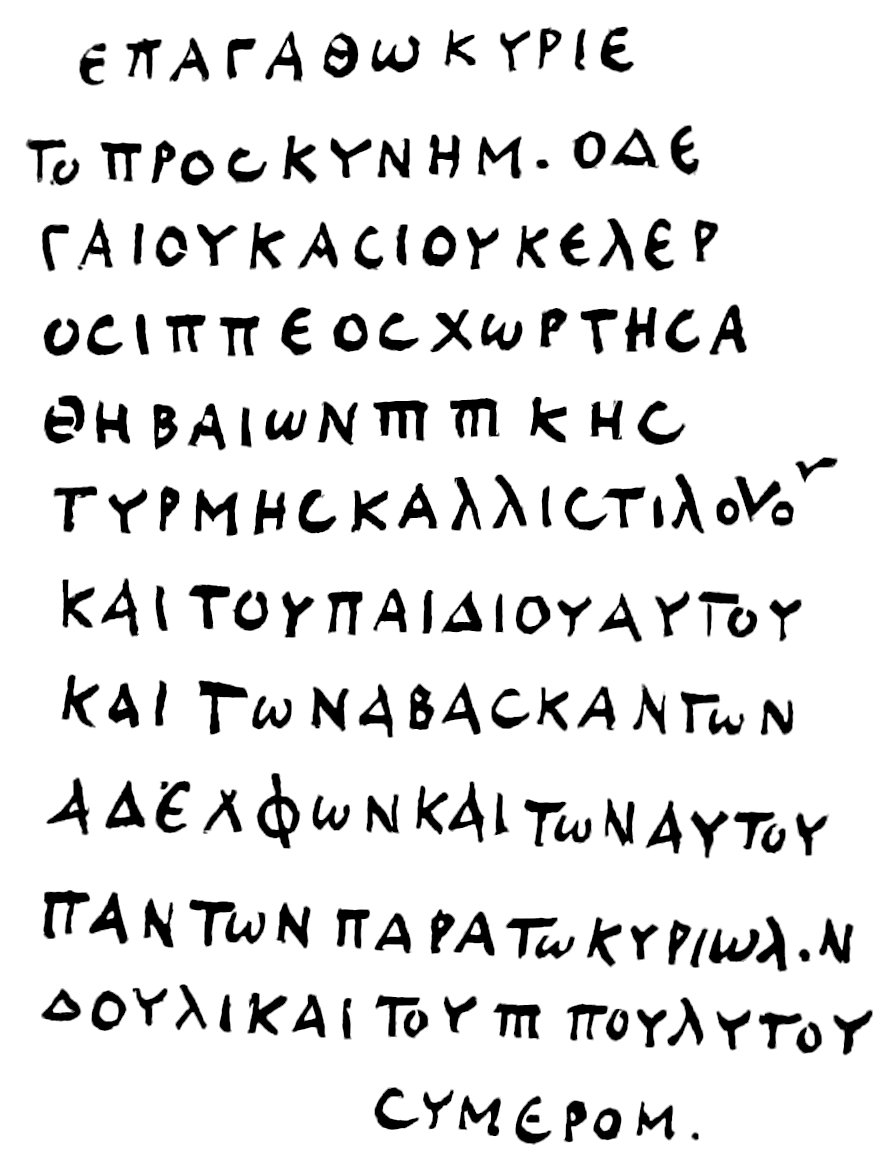 ΕΠΑΓΑΘΩ ΚΥΡΙΕ
ΤΟ ΠΡΟCΚΥΝΗΜ. ΟΔΕ
ΓΑΙΟΥΚΑCΙΟΥΚΕΛΕΡ
ΟCΙΠΠΕΟCΧΩΡΤΗCΑ
ΘΗΒΑΙΩΝΠΠ ΠΠ ΚΗC
ΤΥΡΜΗCΚΑΛΛΙCΤΙΛΟΝΟΥ
ΚΑΙ ΤΟΥΠΑΙΔΙΟΥΑΥΤΟΥ
ΚΑΙ ΤΩΝΑΒΑCΚΑΝΤΩΝ
ΑΔΕΧΦΩΝΚΑΙΤΩΝΑΥΤΟΥ
ΠΑΝΤΩΝ ΠΑΡΑΤΩΚΥΡΙΩΛ.Ν
ΔΟΥΛΙΚΑΙΤΟΥ ΠΠ ΠΟΥΛΥΤΟΥ
CΥΜΕΡΟΜ.